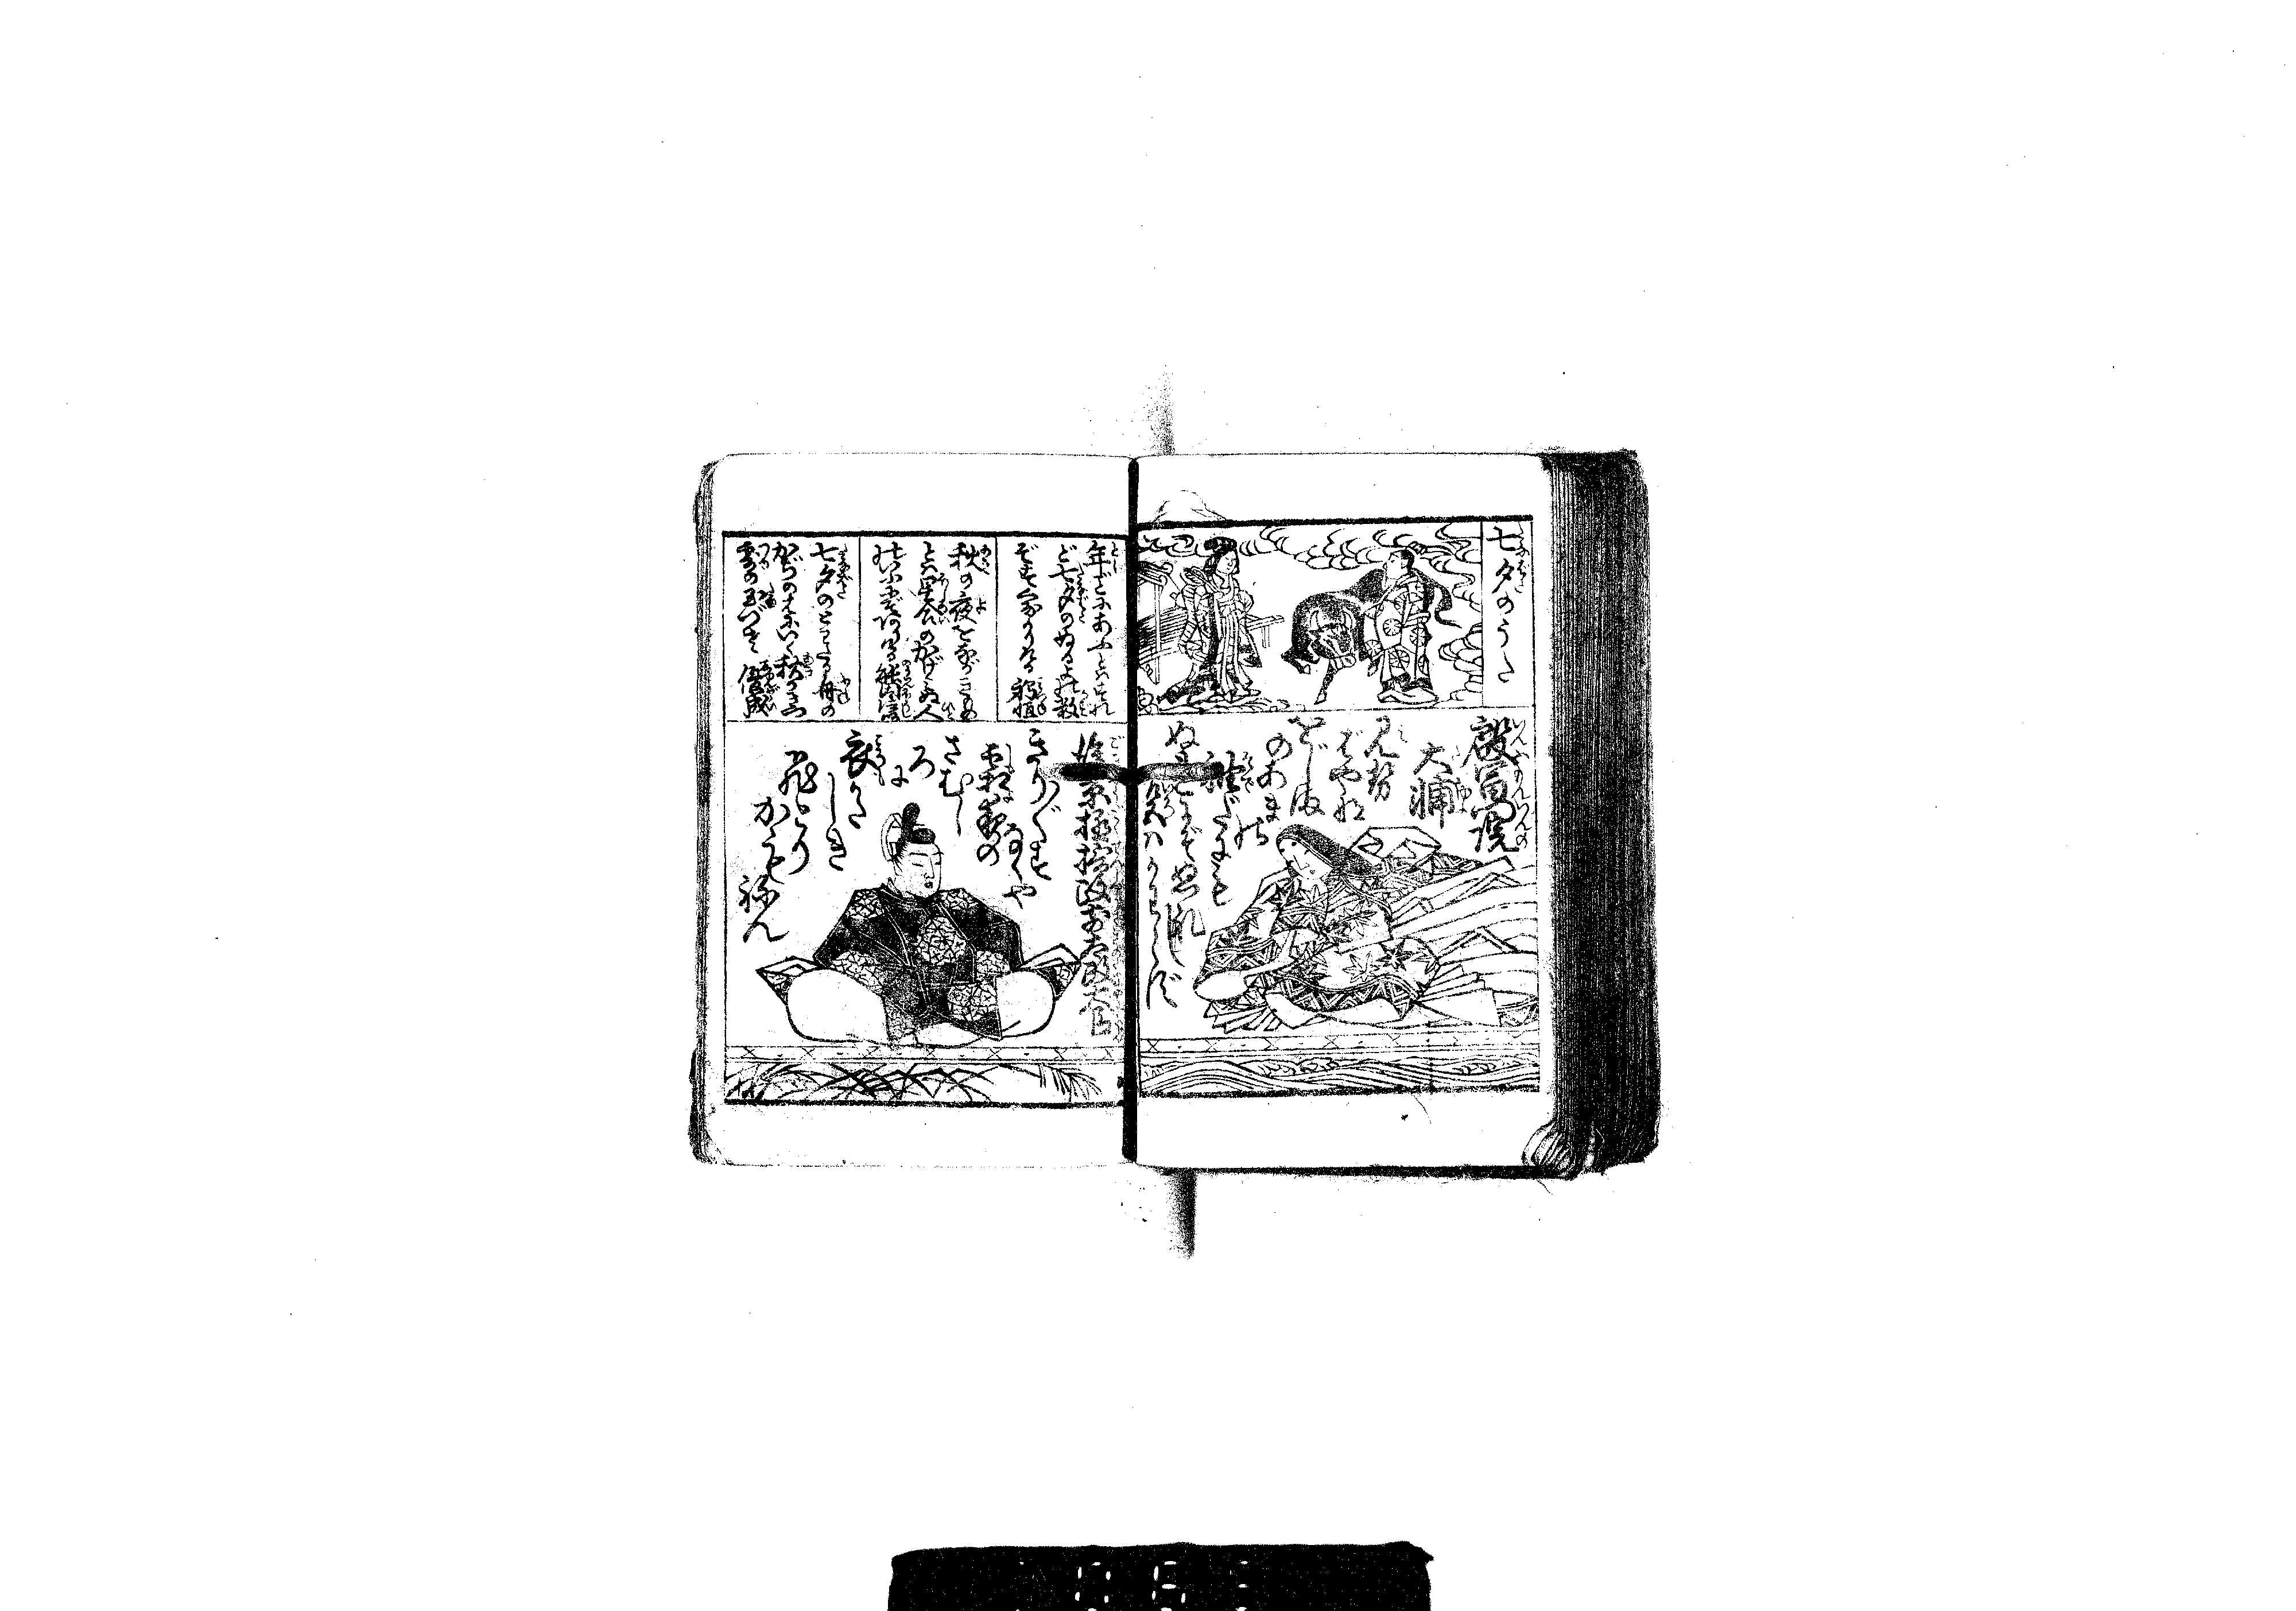 七夕のうた
殷富門院
大輔
見せ
ばやな
をじま
のあま
の
袖だにも
ぬれ
にぞぬれし
色はかはらず
年ごとにあふとはすれ
ど七夕のぬるよの数
ぞすくなかりける 躬恒
秋の夜をながき物
とは星合のかげみぬ人
のいふにぞ有ける 能因法師
七夕のとわたる舟の
かぢの葉にいく秋かき
露の玉づさ 俊成
後京極摂政前太政大臣
きり〴〵す
なくや
霜夜の
さむし
ろに
衣かた
しき
ひとり
かもねん